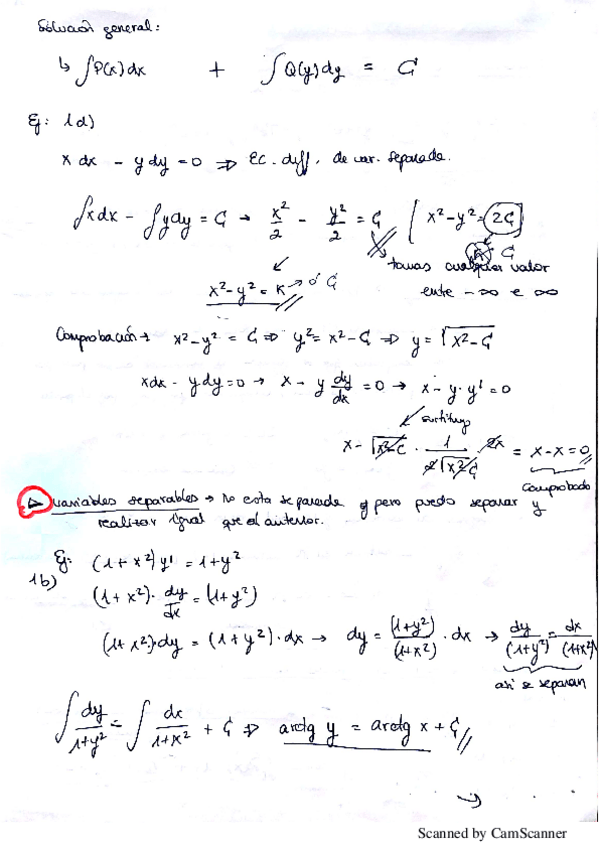 Solución general:
↳ ∫P(x)dx + ∫Q(y)dy = C
Ej: 1d)
x dx - y dy = 0 ⇒ Ec. diff. de var. separada.
∫xdx - ∫ydy = C → x²/2 - y²/2 = C [ x²-y² = 2C
K C
tomas cualquier valor
x²-y² = K → ó C entre -∞ e ∞
Comprobación → x²-y² = C ⇒ y² = x²-C ⇒ y = √x²-C
xdx - ydy = 0 → x - y dy/dx = 0 → x - y·y' = 0
sustituyo
x - √x²-C · 1/2√x²-C · 2x = x-x = 0
Comprobado
variables separables → No esta separada y pero puedo separar y
realizar igual que el anterior.
Ej: (1+x²)y' = 1+y²
1b)
(1+x²)· dy/dx = (1+y²)
(1+x²)·dy = (1+y²)·dx → dy = (1+y²)/(1+x²) · dx → dy/(1+y²) = dx/(1+x²)
así se separan
∫ dy/1+y² = ∫ dx/1+x² + C ⇒ arctg y = arctg x + C
Scanned by CamScanner